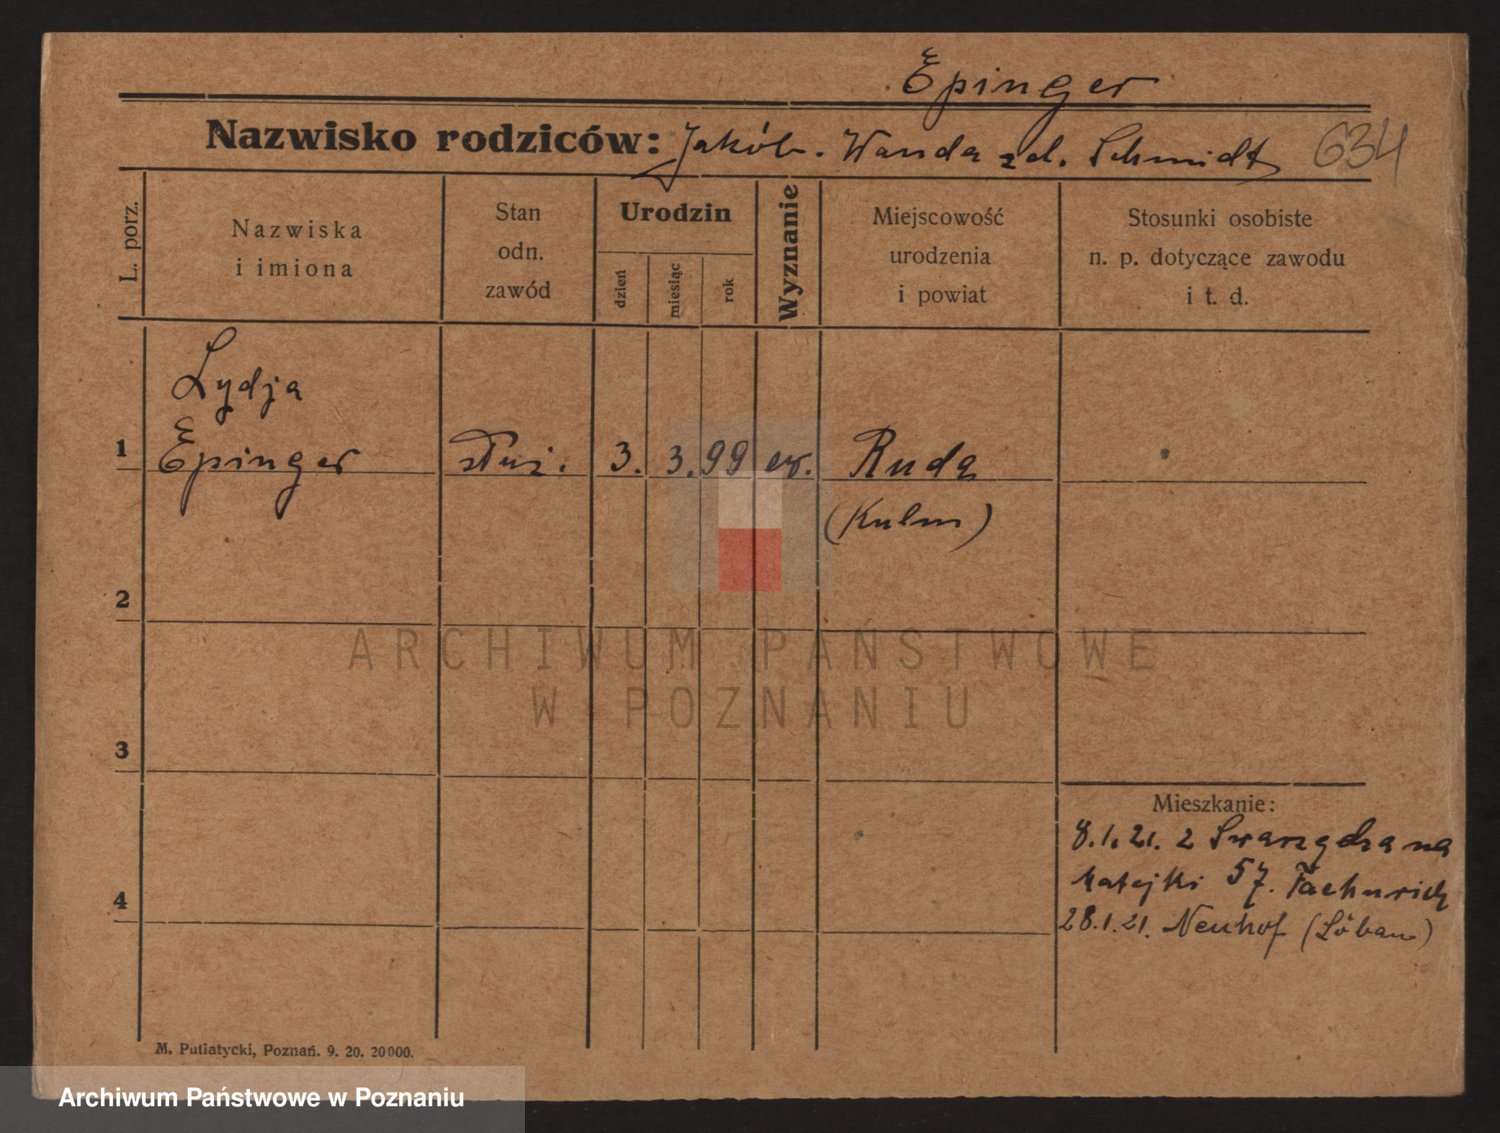 Epinger
Nazwisko rodziców: Jakób. Wanda zd. Schmidt 634
L. porz.
Nazwiska
i imiona
Stan
odn.
zawód
Urodzin
dzień
miesiąc
rok
Wyznanie
Miejscowość
urodzenia
i powiat
Stosunki osobiste
n. p. dotyczące zawodu
i t. d.
Lydja
1 Epinger służ. 3. 3. 99 ew. Ruda
(Kulm)
2
ARCHIWUM PAŃSTWOWE
W POZNANIU
3
Mieszkanie:
8.1.21. z Swarzędza na
Matejki 57.
4
28.1.21. Neuhof (Löbau)
M. Putiatycki, Poznań. 9. 20. 20000.
Archiwum Państwowe w Poznaniu